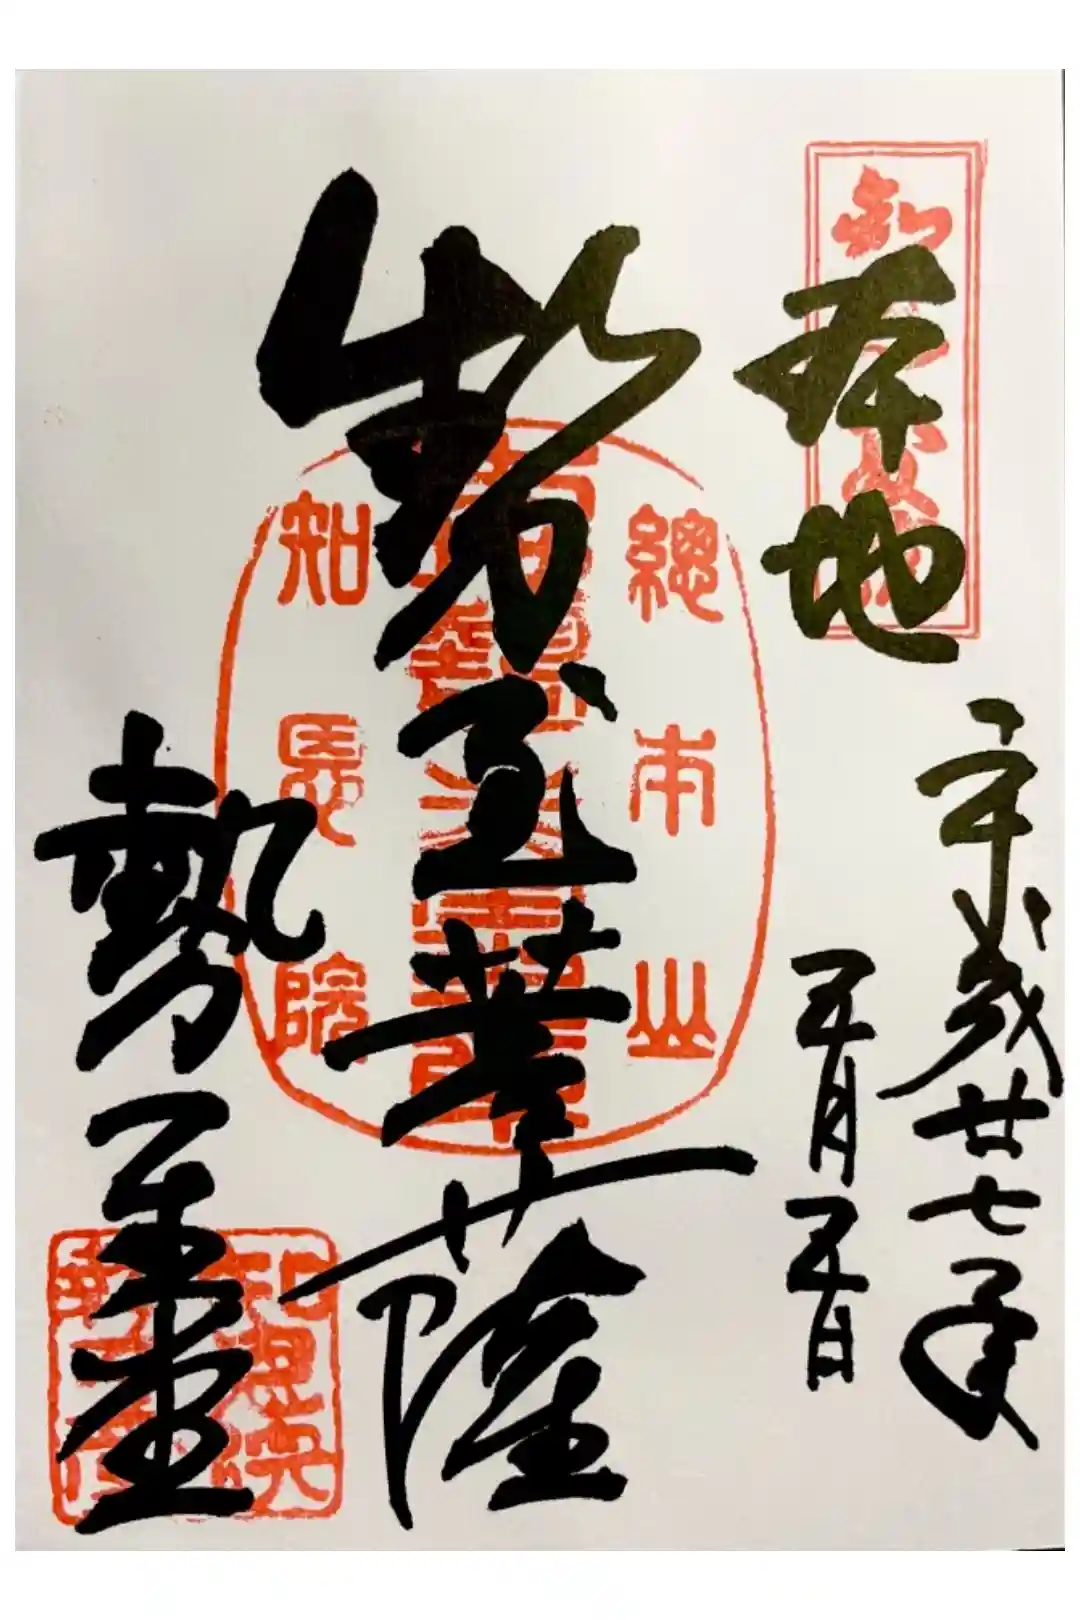 本地
平成廿七年
五月五日
勢至菩薩
總本山
知恩院
勢至堂
知恩院
勢至堂